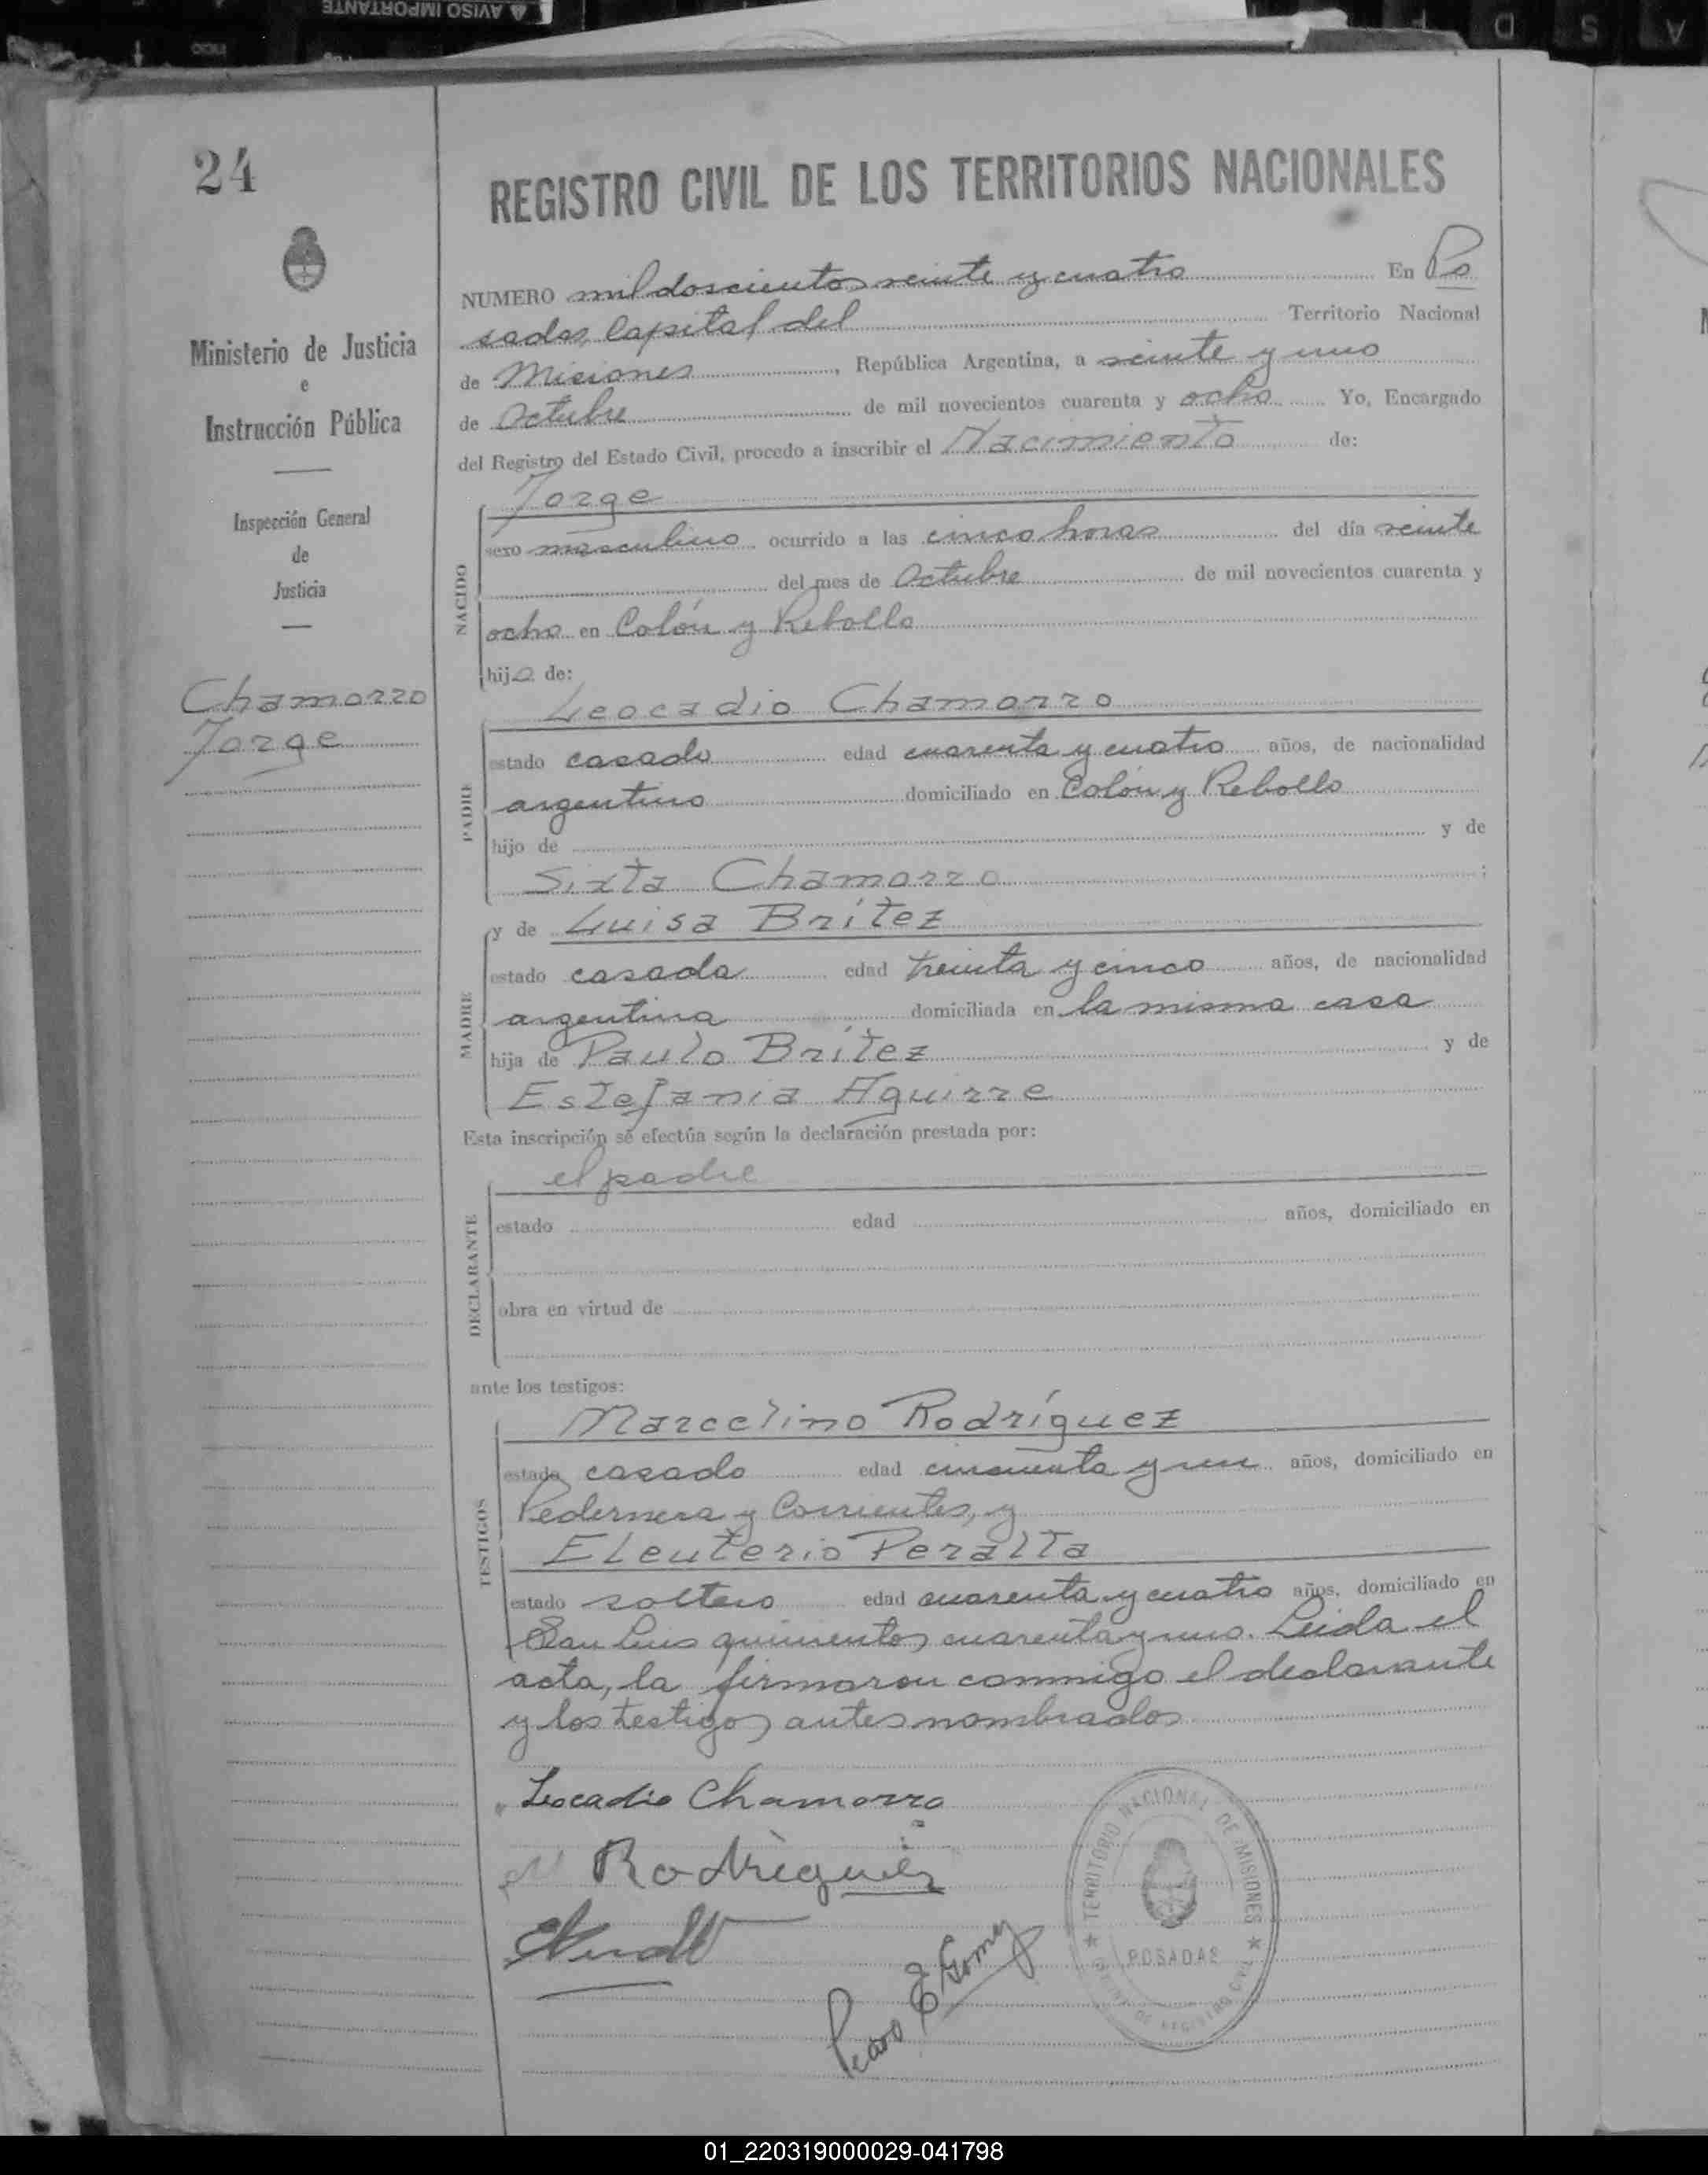 AVISO IMPORTANTE
24
REGISTRO CIVIL DE LOS TERRITORIOS NACIONALES
Ministerio de Justicia
e
Instrucción Pública
Inspección General
de
Justicia
Chamorro
Jorge
NUMERO mil doscientos veinte y cuatro En Po
sadas, Capital del Territorio Nacional
de Misiones, República Argentina, a veinte y uno
de Octubre de mil novecientos cuarenta y ocho Yo, Encargado
del Registro del Estado Civil, procedo a inscribir el Nacimiento de:
Jorge
NACIDO
sexo masculino ocurrido a las cinco horas del día veinte
del mes de Octubre de mil novecientos cuarenta y
ocho en Colón y Rebollo
hijo de:
Leocadio Chamorro
PADRE
estado casado edad cuarenta y cuatro años, de nacionalidad
argentino domiciliado en Colón y Rebollo
hijo de y de
Sixta Chamorro ;
y de Luisa Brítez
MADRE
estado casada edad treinta y cinco años, de nacionalidad
argentina domiciliada en la misma casa
hija de Paulo Brítez y de
Estefania Aguirre
Esta inscripción se efectúa según la declaración prestada por:
el padre
DECLARANTE
estado edad años, domiciliado en
obra en virtud de
ante los testigos:
Marcelino Rodríguez
TESTIGOS
estado casado edad cincuenta y un años, domiciliado en
Pedernera y Corrientes, y
Eleuterio Peralta
estado soltero edad cuarenta y cuatro años, domiciliado en
San Luis quinientos cuarenta y uno. Leida el
acta, la firmaron conmigo el declarante
y los testigos antes nombrados
Leocadio Chamorro
M Rodríguez
Pedro E Gomez
TERRITORIO NACIONAL DE MISIONES
POSADAS
01_220319000029-041798